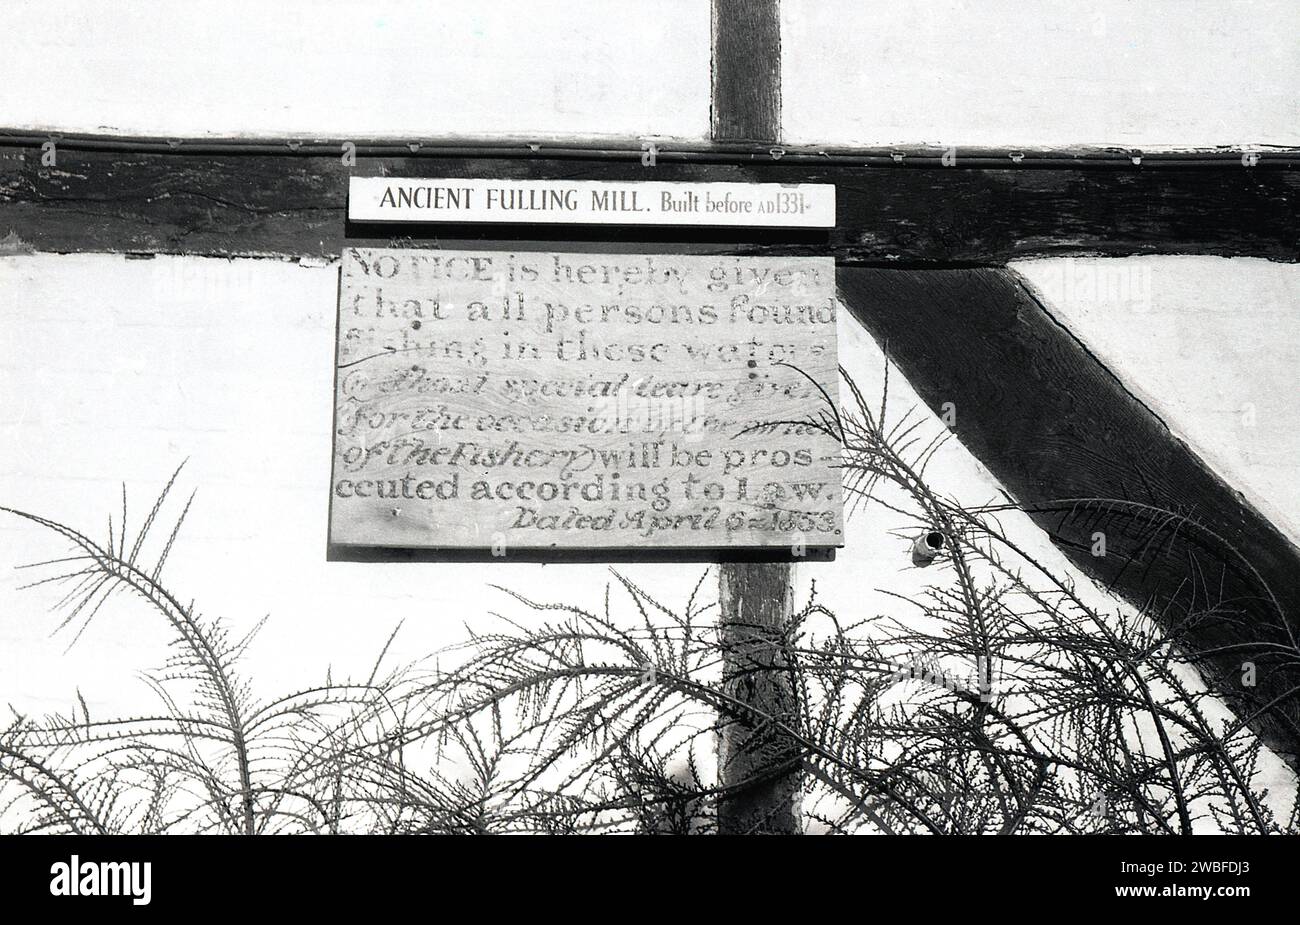 ANCIENT FULLING MILL. Built before AD 1331
NOTICE is hereby given
that all persons found
fishing in these waters
special leave given
for the occasion
of the Fishery will be pros-
ecuted according to Law.
Dated April 9 1853.
alamy
alamy
Image ID: 2WBFDJ3
www.alamy.com